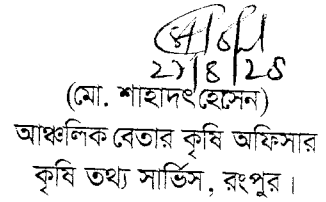 ২৭/৪/২৫
(মো. শাহাদৎ হেসেন)
আঞ্চলিক বেতার কৃষি অফিসার
কৃষি তথ্য সার্ভিস, রংপুর।